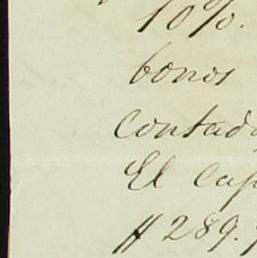 10%.
bonos
contado
El cap
$ 289.